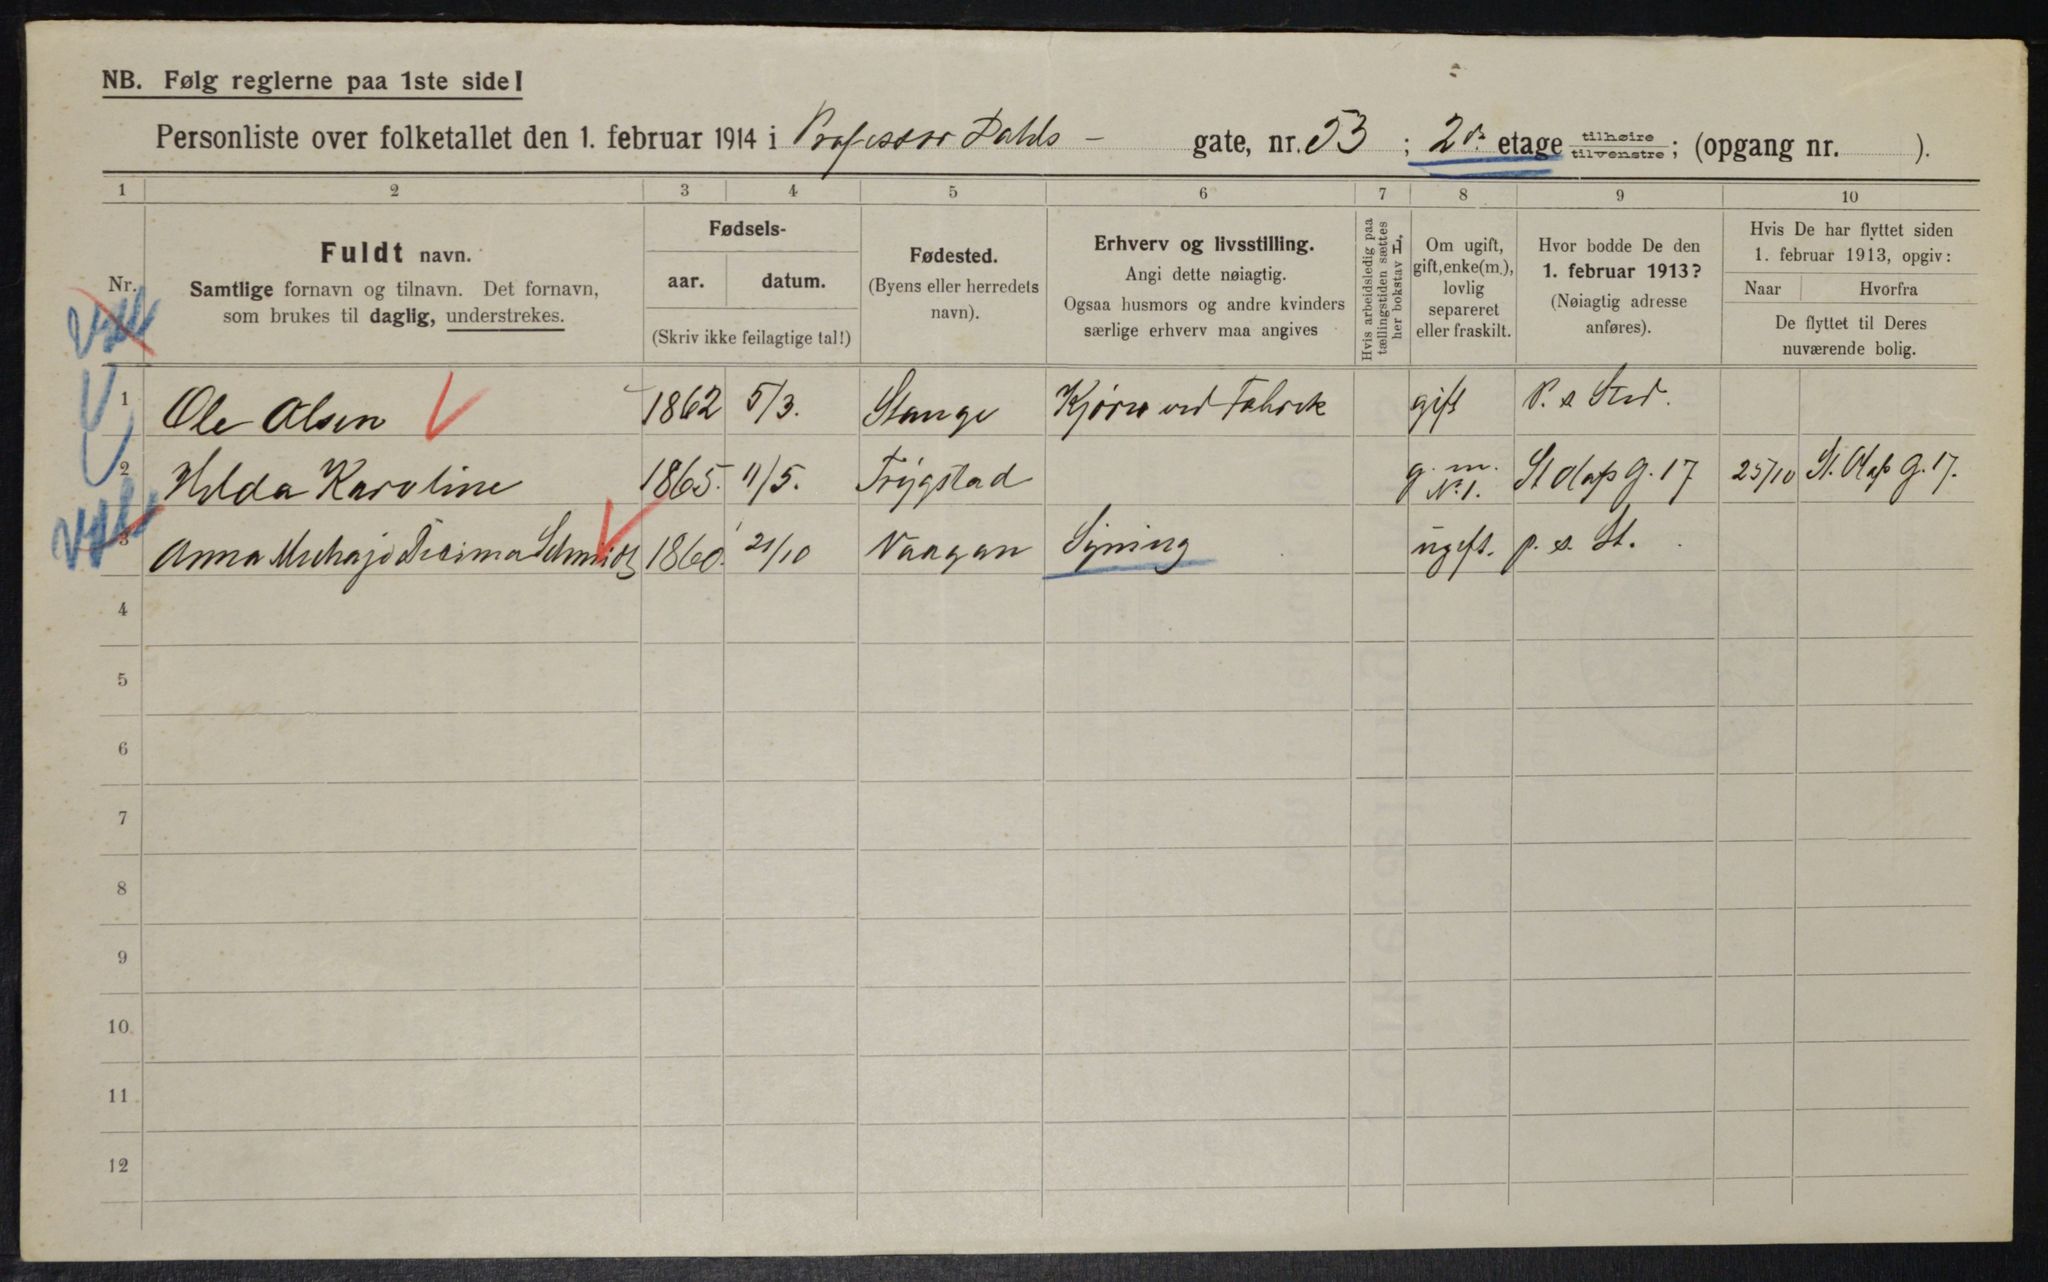 NB. Følg reglerne paa 1ste side!
Personliste over folketallet den 1. februar 1914 i Professor Dahls - gate, nr. 53 ; 2den etage tilhøire/tilvenstre; (opgang nr. ).
1 2 3 4 5 6 7 8 9 10
Nr.
Fuldt navn.
Samtlige fornavn og tilnavn. Det fornavn,
som brukes til daglig, understrekes.
Fødsels-
aar. datum.
(Skriv ikke feilagtige tal!)
Fødested.
(Byens eller herredets
navn).
Erhverv og livsstilling.
Angi dette nøiagtig.
Ogsaa husmors og andre kvinders
særlige erhverv maa angives
Hvis arbeidsledig paa
tællingstiden sættes
her bokstav L.
Om ugift,
gift, enke(m.),
lovlig
separeret
eller fraskilt.
Hvor bodde De den
1. februar 1913?
(Nøiagtig adresse
anføres).
Hvis De har flyttet siden
1. februar 1913, opgiv:
Naar Hvorfra
De flyttet til Deres
nuværende bolig.
1 Ole Olsen 1862 5/3. Stange Kjører ved Fabrik gift P. s Sted.
2 Hilda Karoline 1865. 11/5. Trygstad g. m. N. 1. St Olafs G. 17 25/10 St. Olafs G. 17.
3 Anna Schmidt 1860. 21/10 Vaagan Syning ugift. p. s. St.
4
5
6
7
8
9
10
11
12